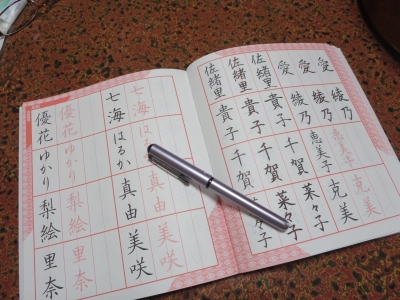 愛 綾乃
愛 綾乃 恵美子 克美
愛 綾乃 恵美子 克美
佐緒里 貴子 千賀 菜々子
佐緒里 貴子 千賀 菜々子
佐緒里 貴子 千賀 菜々子
七海 はるか 真由 美咲
七海 はるか 真由 美咲
優花 ゆかり 梨絵 里奈
優花 ゆかり 梨絵 里奈